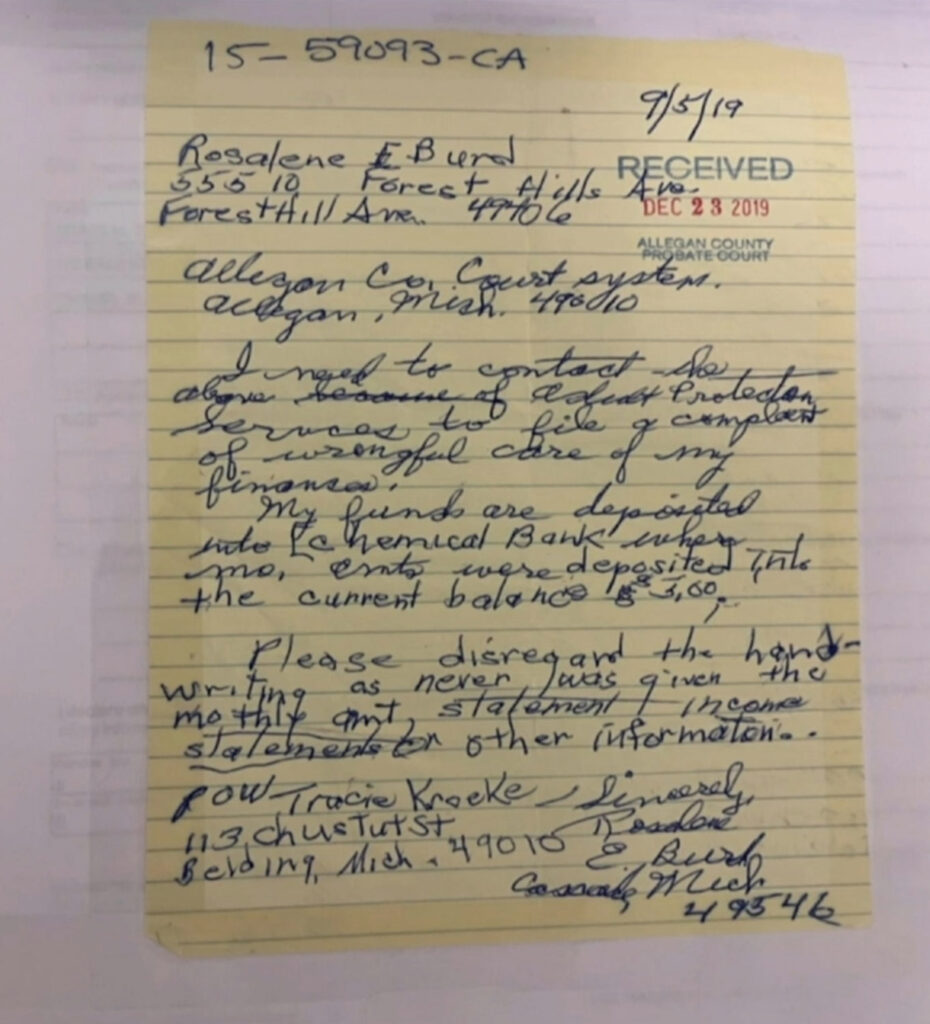 15-59093-CA
9/5/19
Rosalene E Burd
555 10 Forest Hills Ave.
RECEIVED
Forest Hill Ave. 49406
DEC 23 2019
ALLEGAN COUNTY
PROBATE COURT
Allegan Co. Court system.
Allegan, Mish. 490010
I need to contact the
above because of Adust Protecton
Services to file a complaent
of wrongful care of my
finances.
My funds are deposited
into Chemical Bank where
mo. were deposited Into
the current balance 3,00,
Please disregard the hand-
writing as never was given the
mothly amt, statement / income
statements or other informaton..
Tracie Kroeke, Sincerely,
113, St Rosalene
Belding, Mich. 49010 E. Burd
Mich
49546